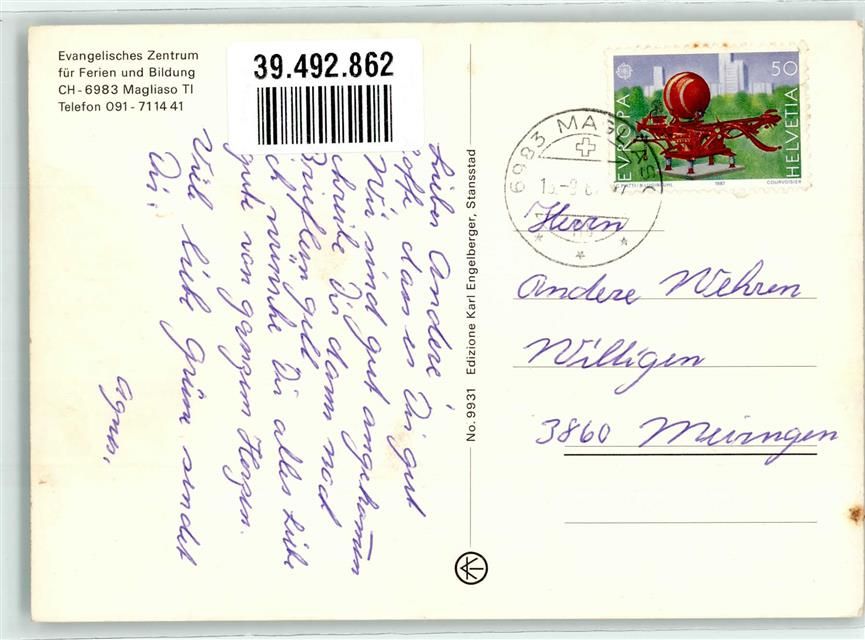 Evangelisches Zentrum
für Ferien und Bildung
CH-6983 Magliaso TI
Telefon 091-71 14 41
39.492.862
Lieber Andere!
offe dass es Dir gut
Wir sind gut angekommen
chreibe Dir dann noch
Brieflein gell
ich wünsche Dir alles Liebe
gute von ganzem Herzen.
Viel liebe Grüsse sendet
Dir:
Agnes.
No. 9931 Edizione Karl Engelberger, Stansstad
EUROPA
50
HELVETIA
1987
COURVOISIER
6983 MAG
Herrn
Andere Wehren
Willigen
3860 Meiringen